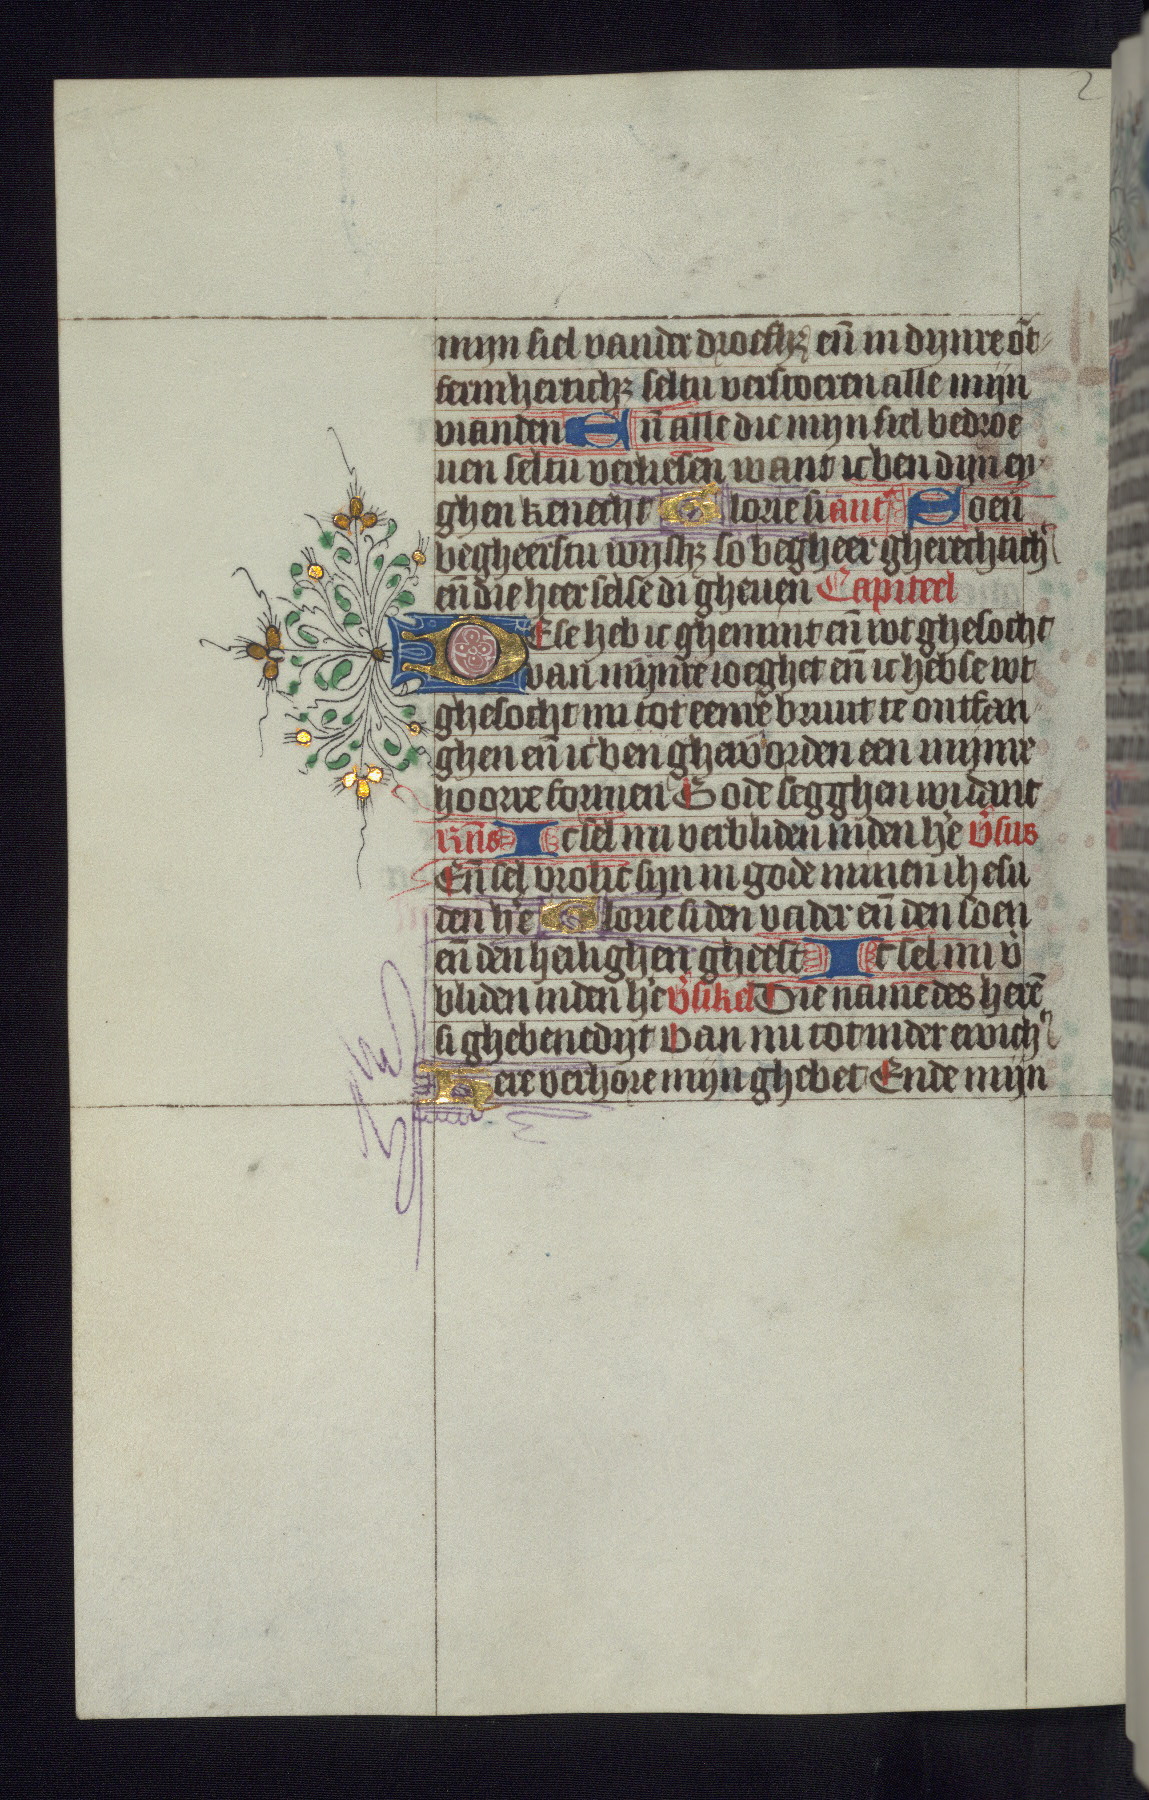 2
mijn siel vander droefhꝫ en̄ in dijnre ōt
fermherticħꝫ seltu verstoeren alle mijn
vianden En̄ alle die mijn siel bedroe
uen seltu verliesen want ic ben dijn ey
ghen kenecht Glorie si ant' Soen
begheerstu wijshꝫ so begheer gherechtich
en̄ die heer selse di gheuen Capiteel
DEse heb ic ghemint en̄ wt ghesocht
van mijnre ioeghet en̄ ic hebse wt
ghesocht mi tot eenre bruut te ontfan
ghen en̄ ic ben gheworden een minnre
hoorre formen Gode segghen wi danc
Rn̄s Ic sel mi verbliden inden h'e v̄sus
En̄ sel vrolic sijn in gode minen ihesu
den h'e Glorie si den vader en̄ den soen
en̄ den heilighen gheest Ic sel mi v̄
bliden inden h'e v̄sikel Die name des herē
si ghebenedijt Van nu tot inder ewich
Here verhore mijn ghebet Ende mijn